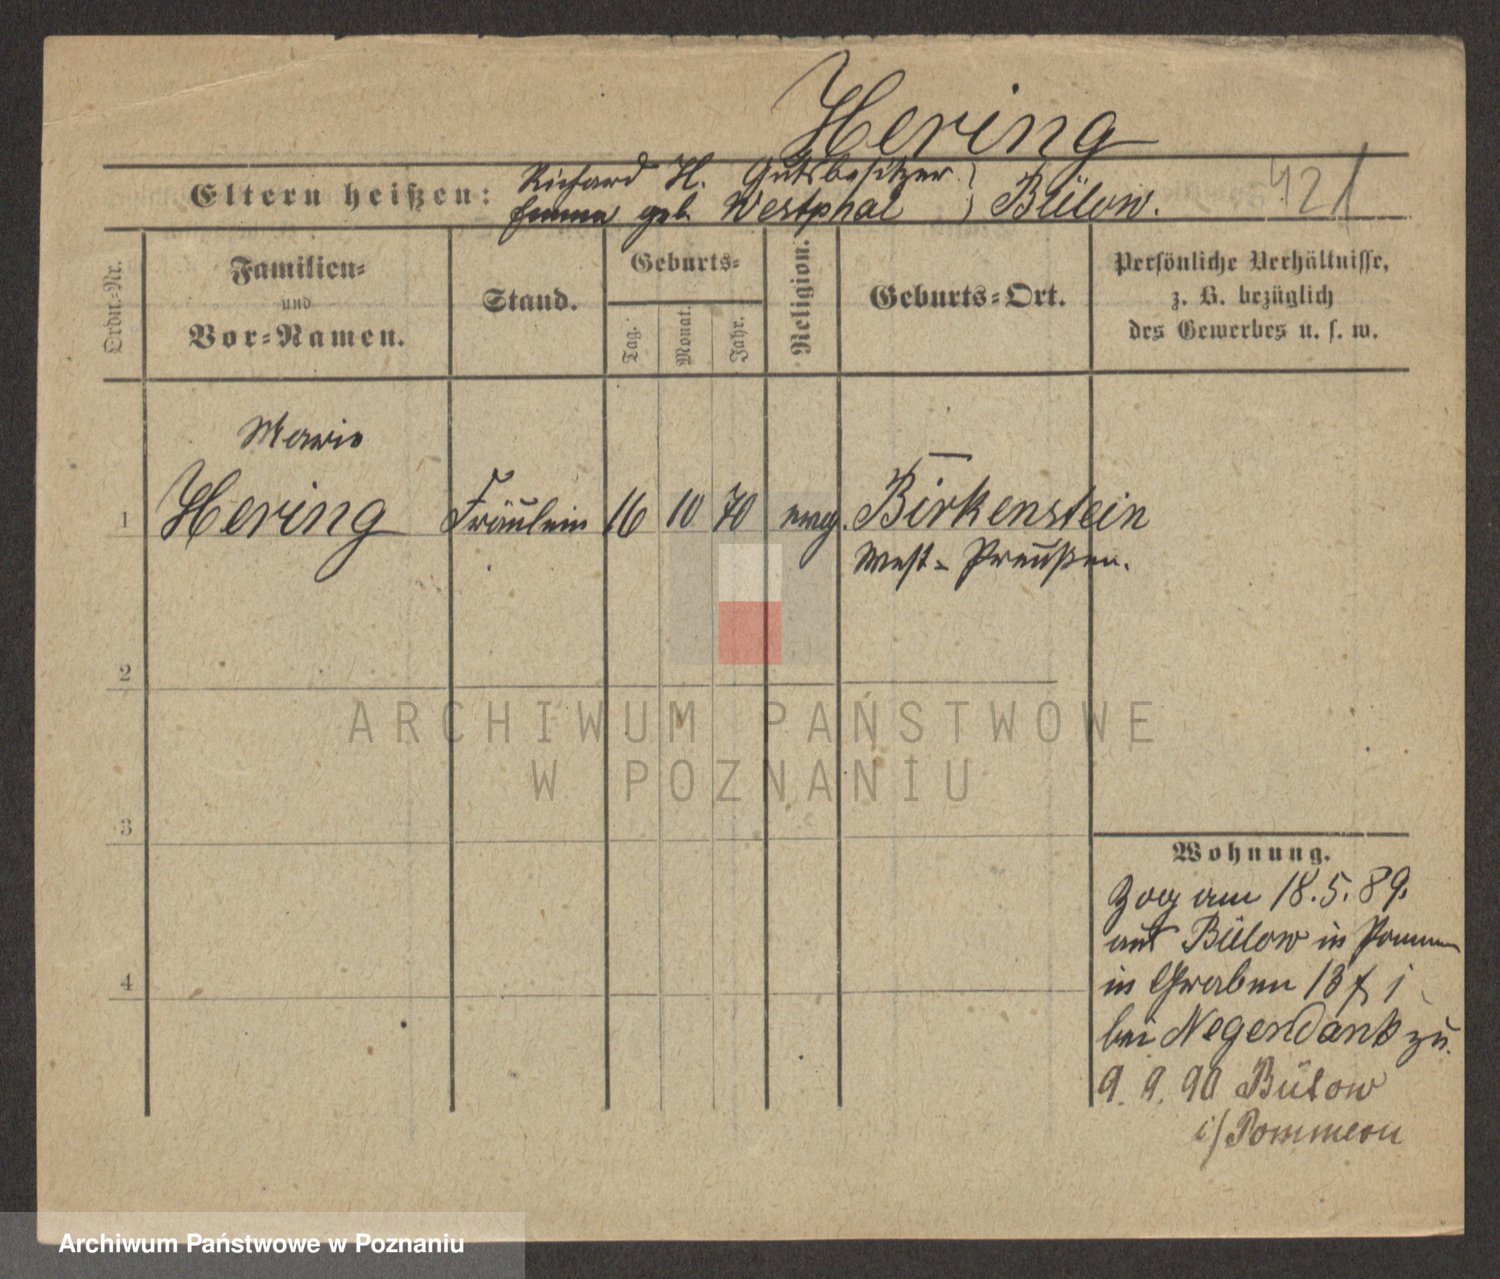 Hering
Eltern heißen: Richard H. Gutsbesitzer } Bülow. 421
Emma geb. Westphal
Ordn.-Nr.
Familien-
und
Vor-Namen.
Stand.
Geburts-
Tag. Monat. Jahr.
Religion.
Geburts-Ort.
Persönliche Verhältnisse,
z. B. bezüglich
des Gewerbes u. s. w.
Marie
1 Hering Fräulein 16 10 70 evg. Birkenstein
West-Preußen.
2
3
4
Wohnung.
Zog am 18.5.89.
aus Bülow in Pommern
in Graben 13
bei Negendank zu.
9. 9. 90 Bütow
i/Pommern
ARCHIWUM PAŃSTWOWE
W POZNANIU
Archiwum Państwowe w Poznaniu